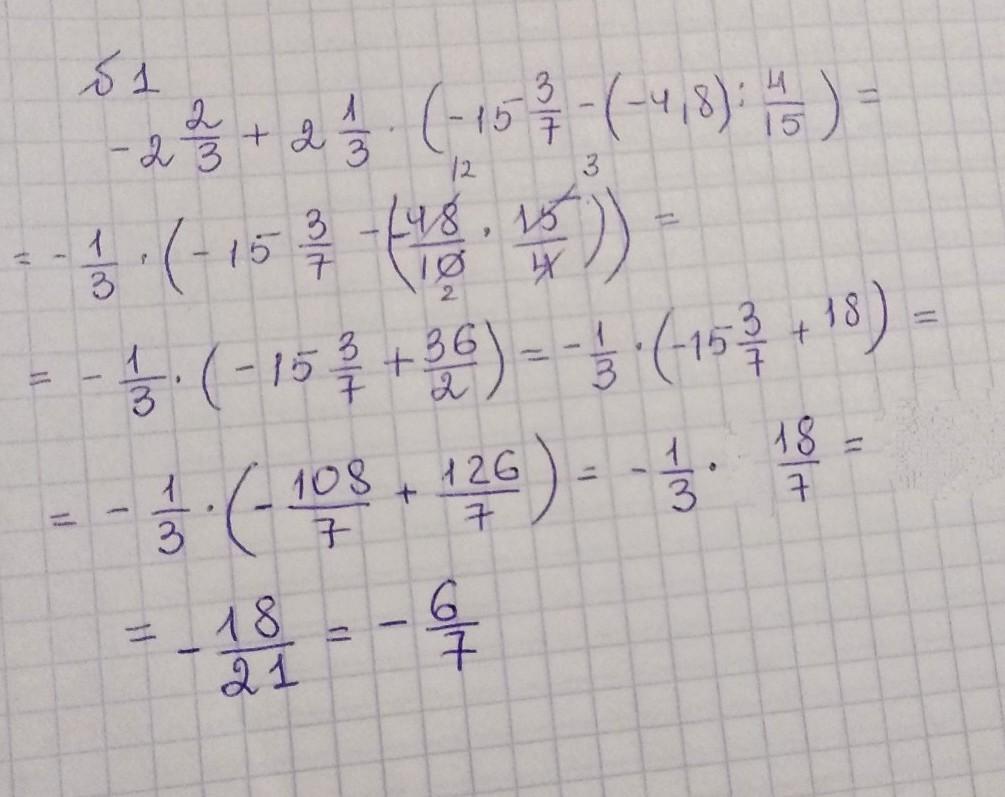 б 1
-2 2/3 + 2 1/3 · (-15 3/7 - (-4,8) : 4/15) =
12 3
= - 1/3 · (-15 3/7 - (-48/10 · 15/4)) =
2
= - 1/3 · (-15 3/7 + 36/2) = - 1/3 · (-15 3/7 + 18) =
= - 1/3 · (- 108/7 + 126/7) = - 1/3 · 18/7 =
= - 18/21 = - 6/7